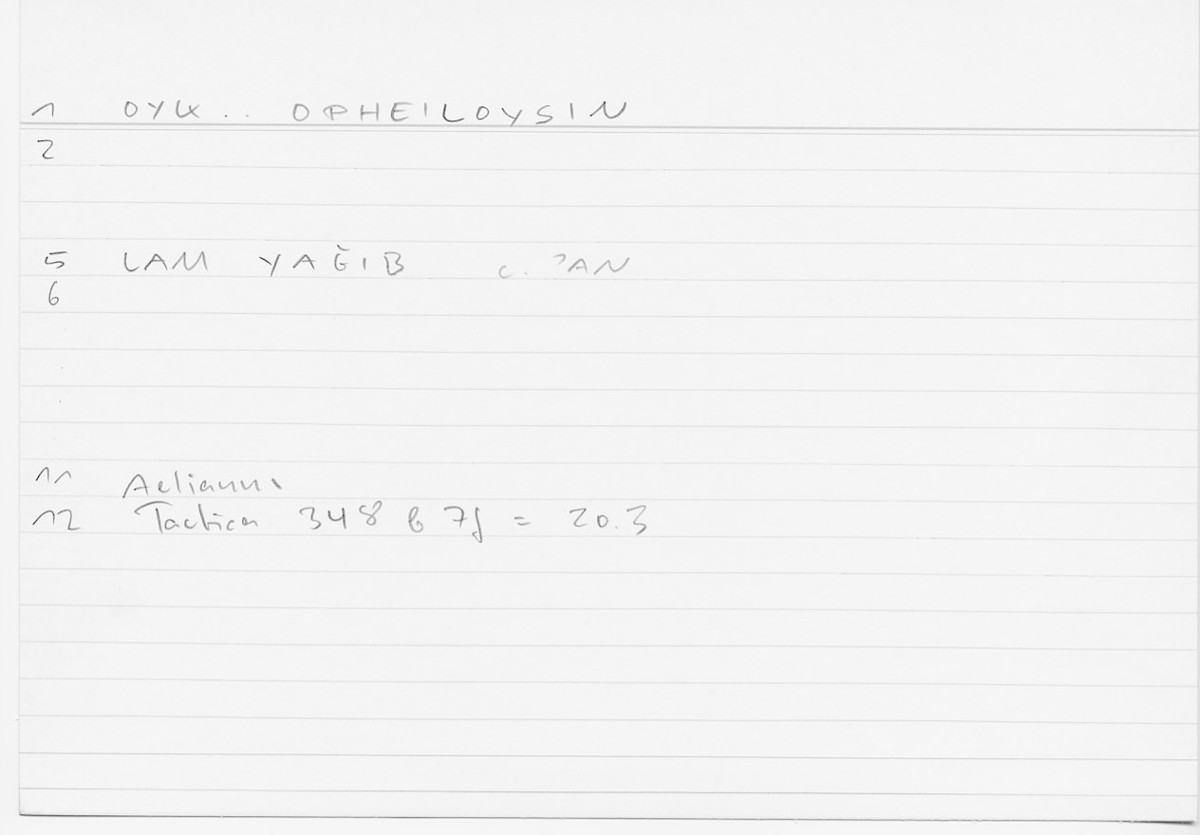 1 OYK .. OPHEILOYSIN
2
5 LAM YAĞIB c. ʾAN
6
11 Aelianus
12 Tactica 348 b 7f = 20.3